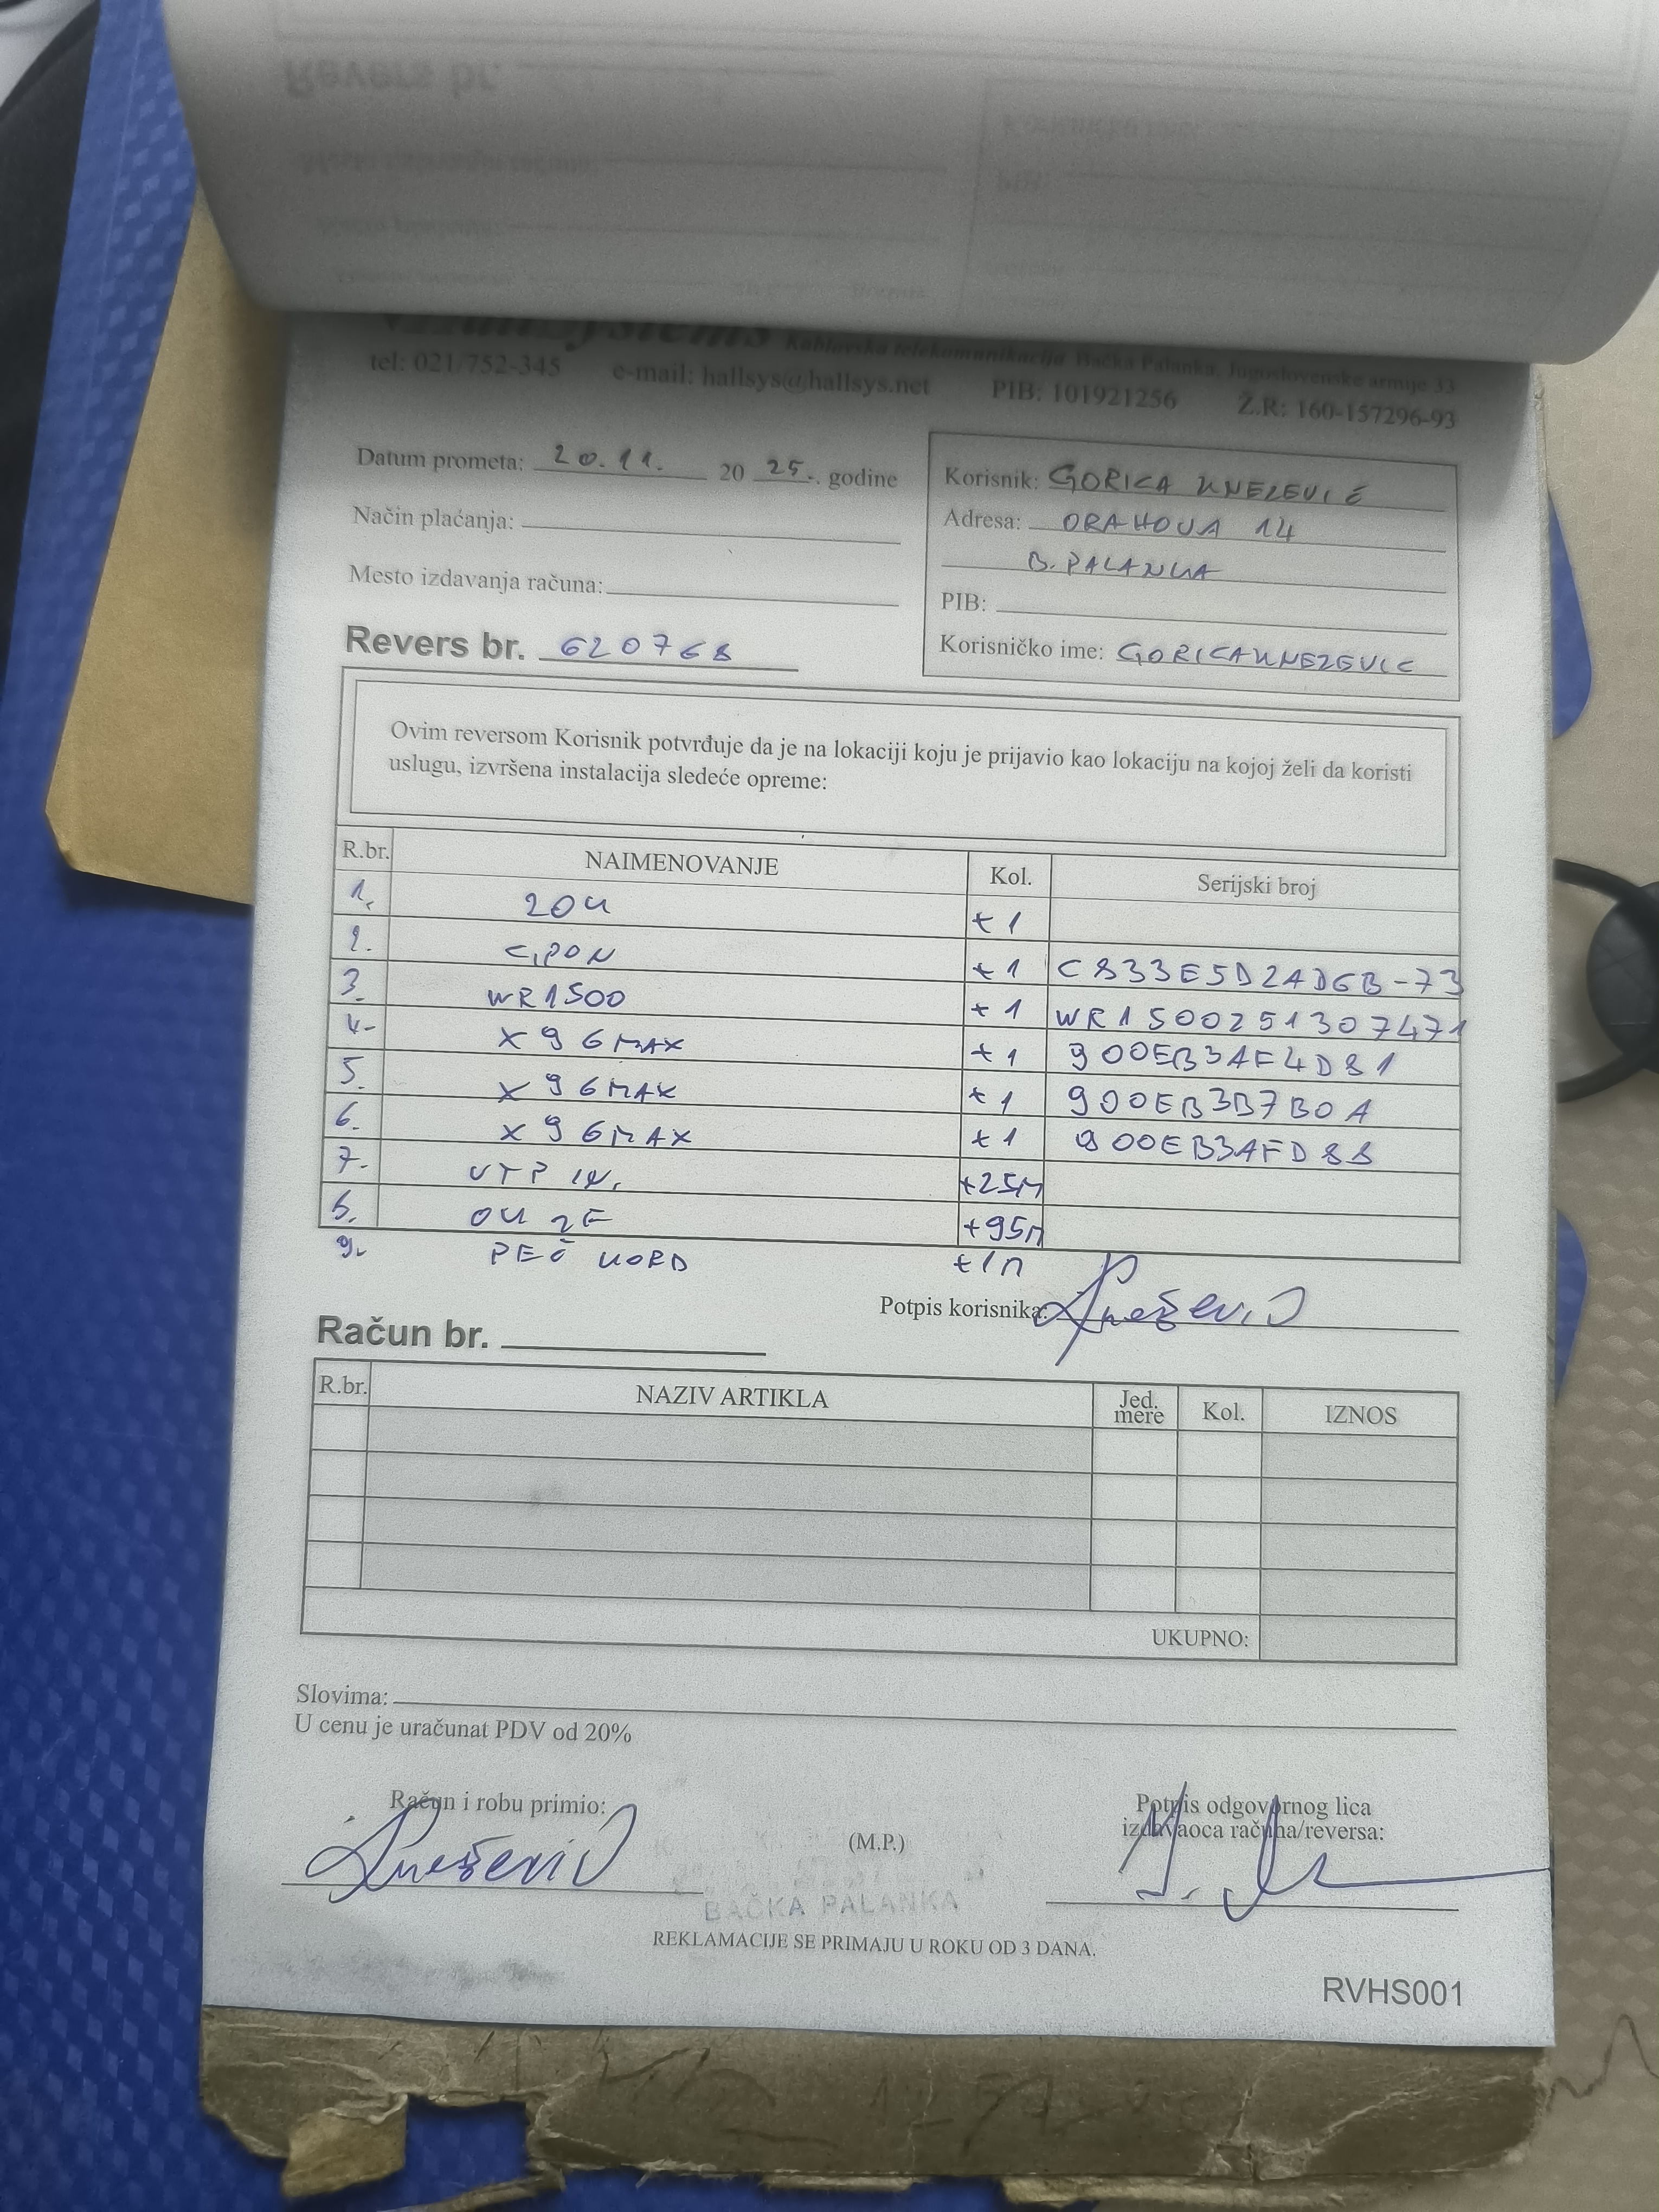 Kablovska telekomunikacija Bačka Palanka, Jugoslovenske armije 33
tel: 021/752-345 e-mail: hallsys@hallsys.net PIB: 101921256 Ž.R: 160-157296-93
Datum prometa: 20.11. 20 25. godine
Način plaćanja:
Mesto izdavanja računa:
Revers br. 620768
Korisnik: GORICA KNEZEVIĆ
Adresa: ORAHOVA 14
B. PALANKA
PIB:
Korisničko ime: GORICAKNEZEVIC
Ovim reversom Korisnik potvrđuje da je na lokaciji koju je prijavio kao lokaciju na kojoj želi da koristi
uslugu, izvršena instalacija sledeće opreme:
R.br. NAIMENOVANJE Kol. Serijski broj
1. ZOK +1
2. GPON +1 C833E5D2AD6B-73
3. WR1500 +1 WR1500251307471
4. X96MAX +1 900EB3AF4D81
5. X96MAX +1 900EB3B7B0A
6. X96MAX +1 900EB3AFD88
7. UTP +25M
8. OK 2F +95M
9. PEČ KORD +1M
Potpis korisnika: Knežević
Račun br.
R.br. NAZIV ARTIKLA Jed. mere Kol. IZNOS
UKUPNO:
Slovima:
U cenu je uračunat PDV od 20%
Račun i robu primio:
Knežević
(M.P.)
BAČKA PALANKA
Potpis odgovornog lica
izdavaoca računa/reversa:
REKLAMACIJE SE PRIMAJU U ROKU OD 3 DANA.
RVHS001